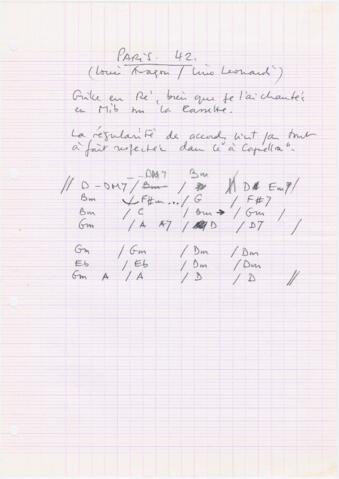 PARIS. 42.
(Louis Aragon / Lino Leonardi)
Grille en Ré, bien que je l'ai chantée
en Mib sur la Cassette.
La régularité de accords n'est pas tout
à fait respectée dans le "à Capella".
-- DM7 Bm
// D - DM7 / Bm / D Em7/
Bm / F#m... / G / F#7
Bm / C / Bm → / Gm /
Gm / A A7 / D / D7 /
Gm / Gm / Bm / Bm
Eb / Eb / Dm / Dm
Gm A / A / D / D //